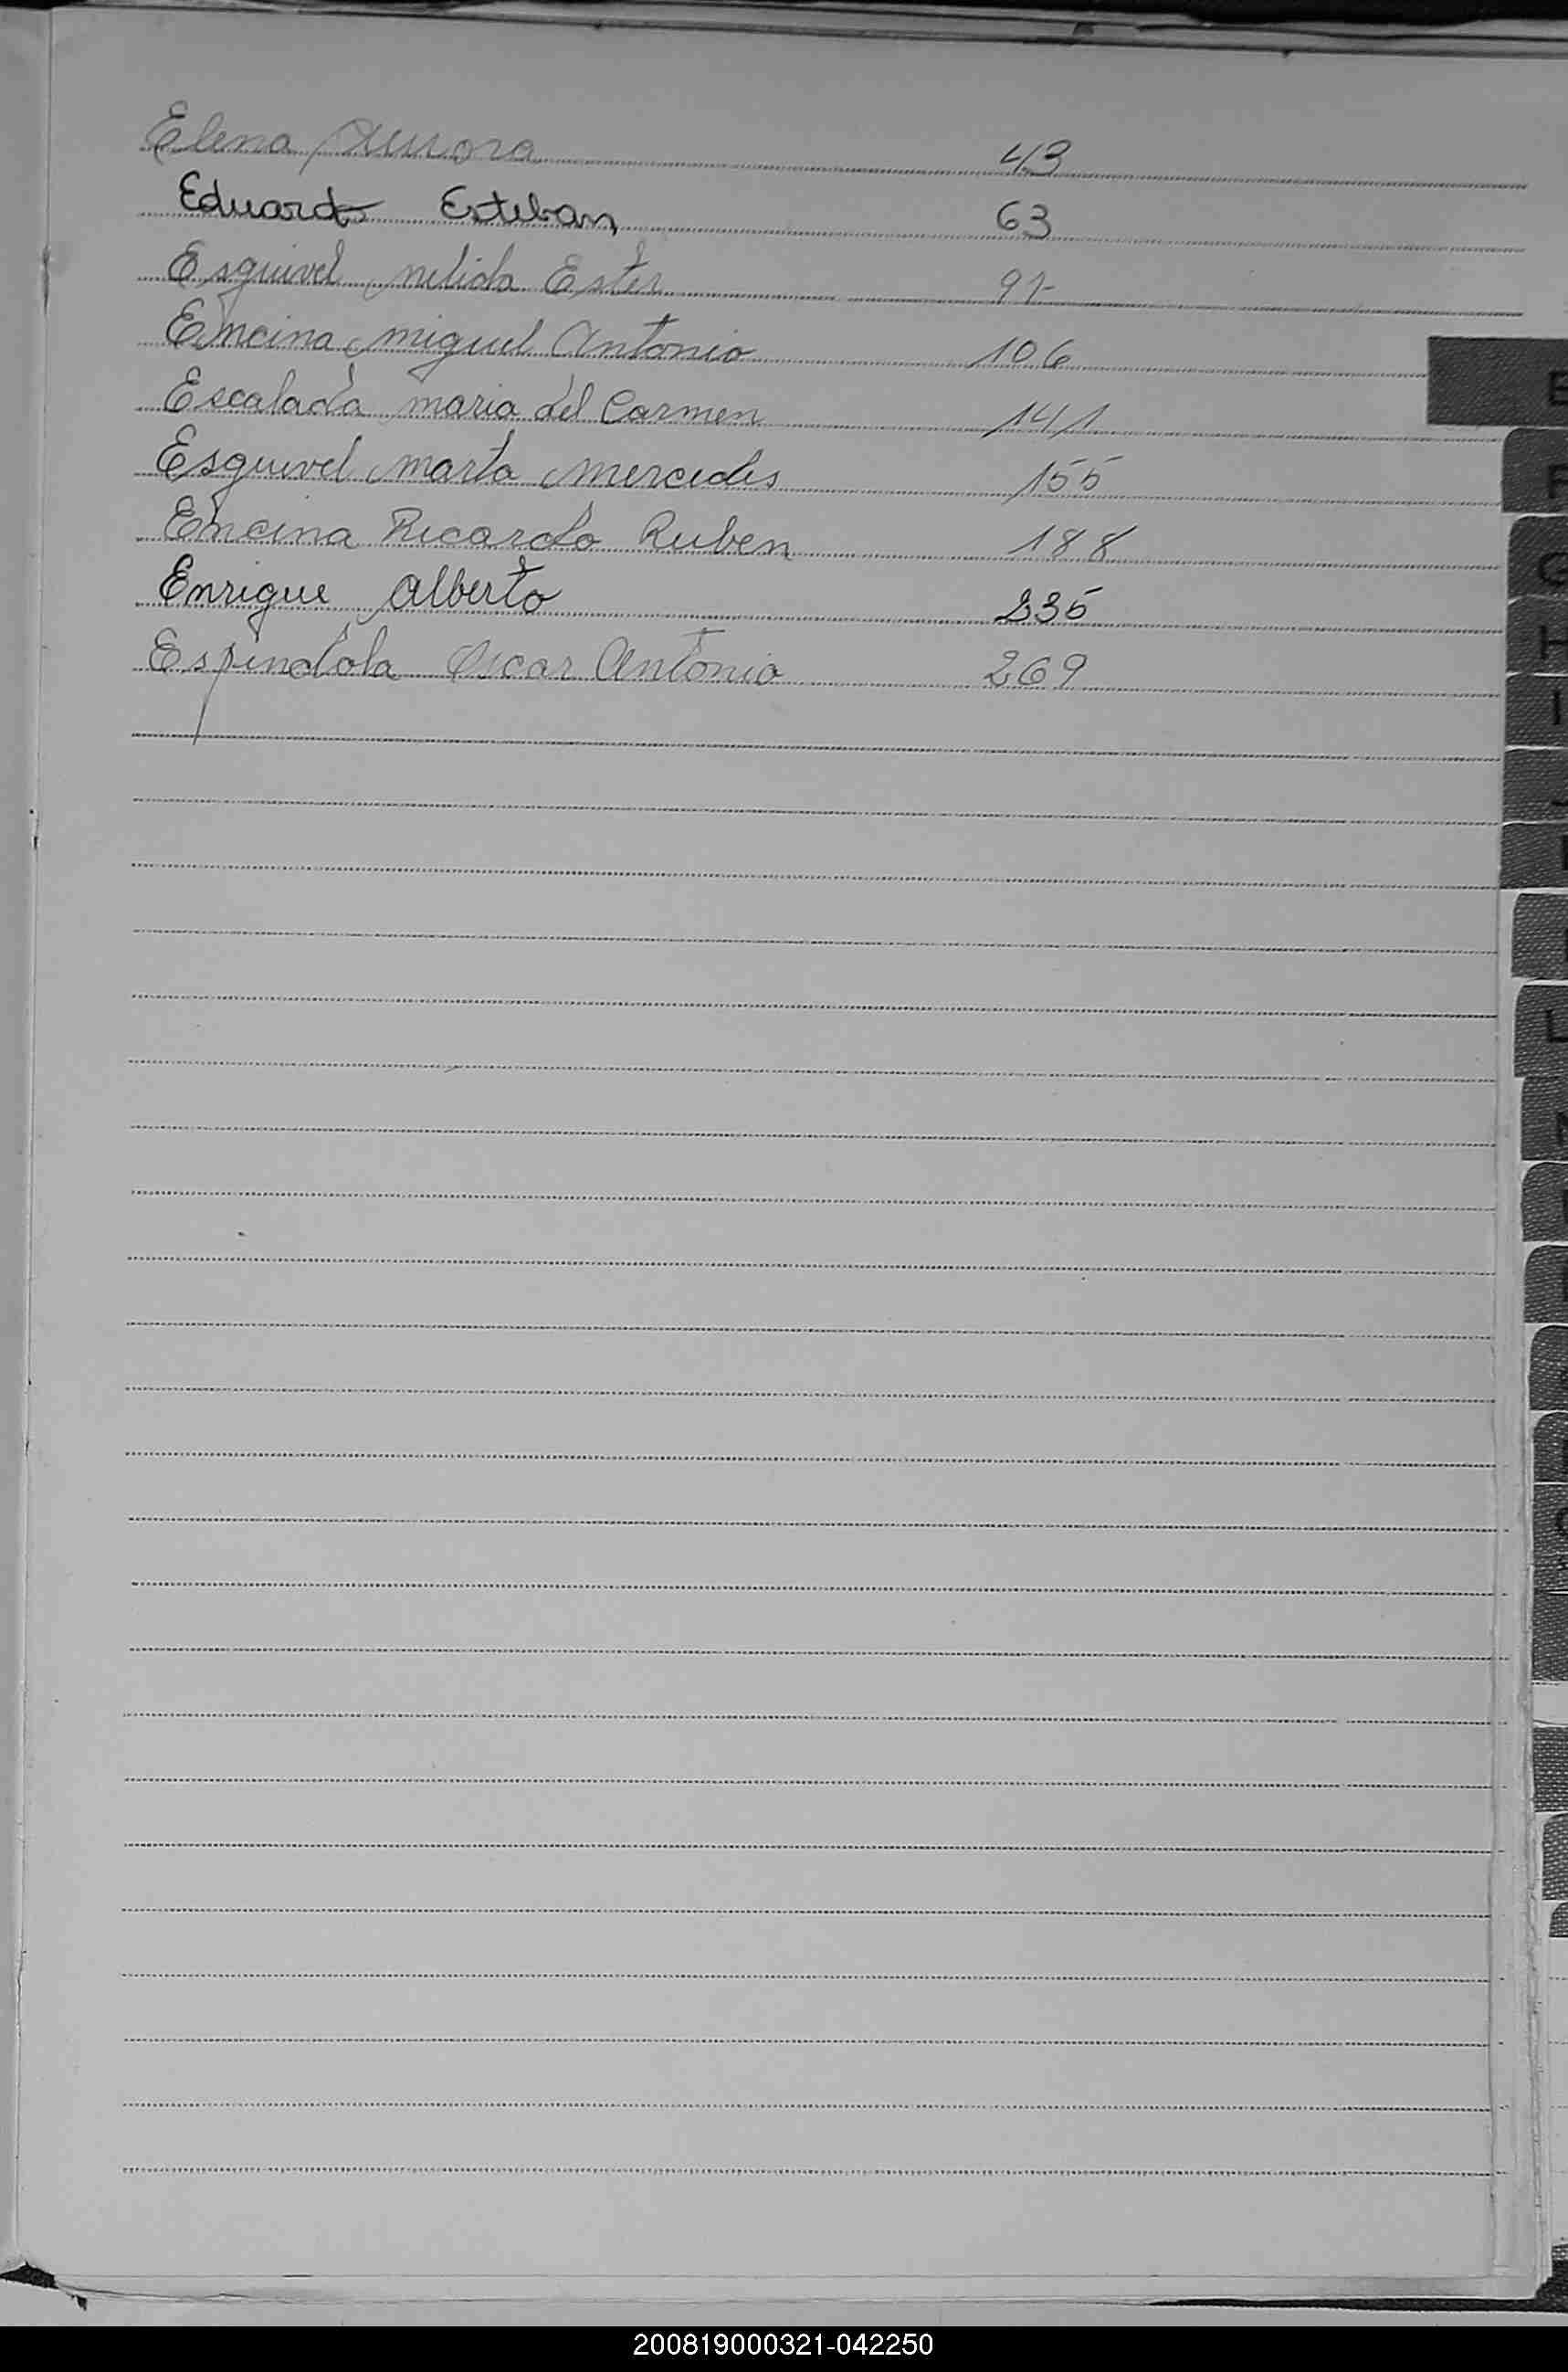 Elena Aurora 43
Eduardo Esteban 63
Esquivel nelida Ester 91
Encina miguel Antonio 106
Escalada maria del Carmen 141
Esquivel marta mercedes 155
Encina Ricardo Ruben 188
Enrique Alberto 235
Espindola Oscar Antonio 269
E
F
G
H
I
L
200819000321-042250